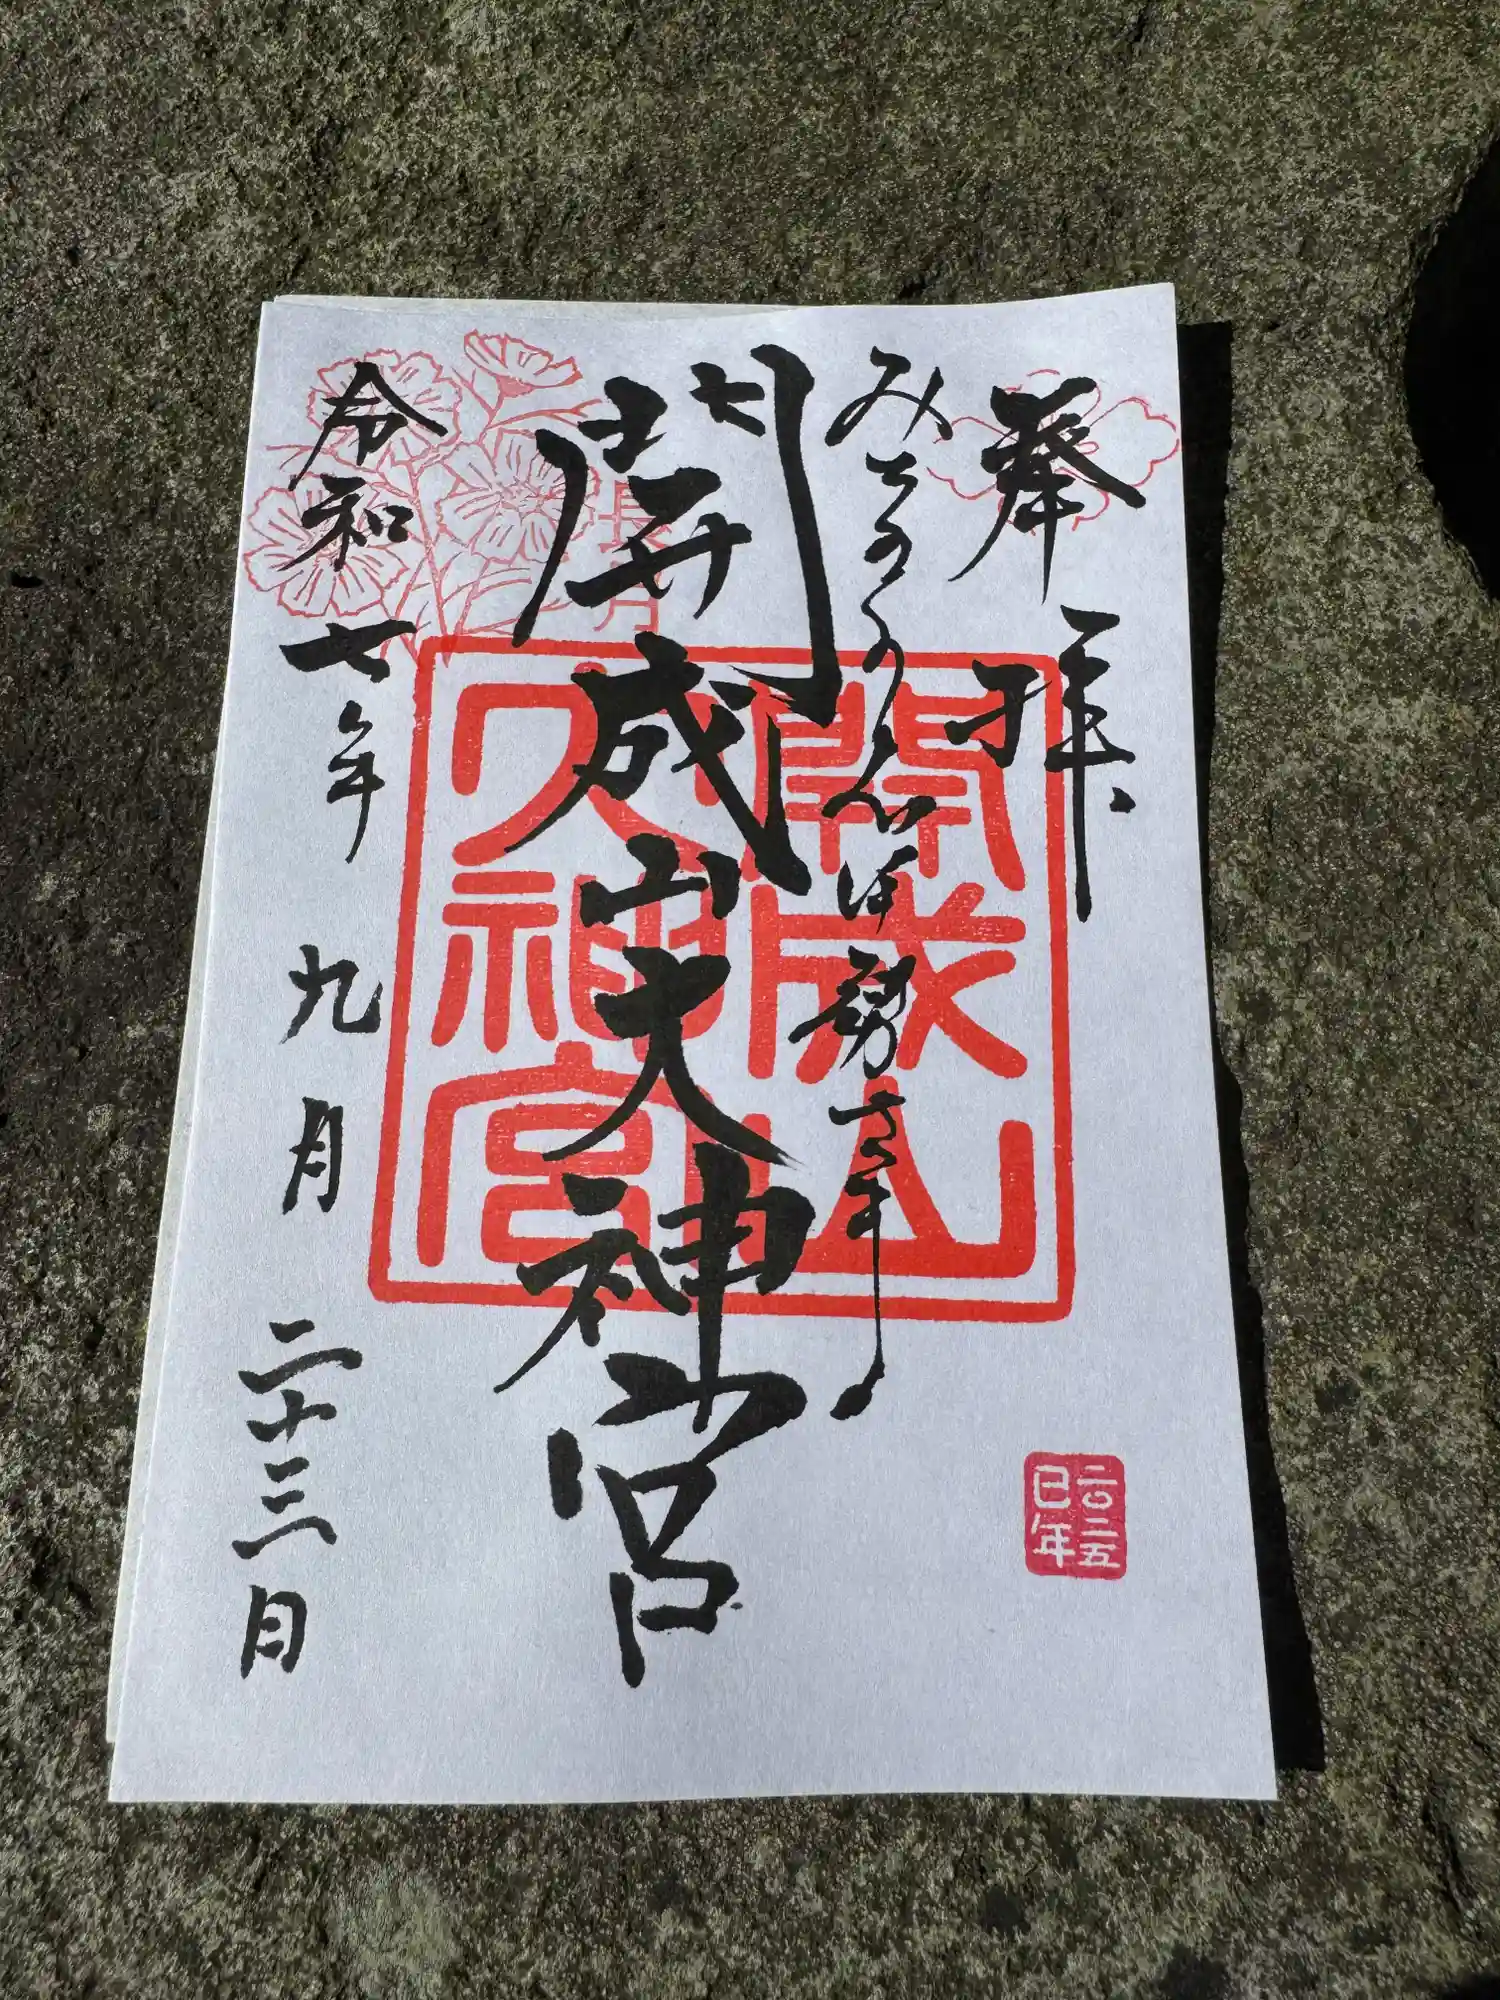 奉拝
みちのくのお伊勢さま
開成山大神宮
開成山
大神宮
長月
令和七年九月二十三日
二〇二五
巳年